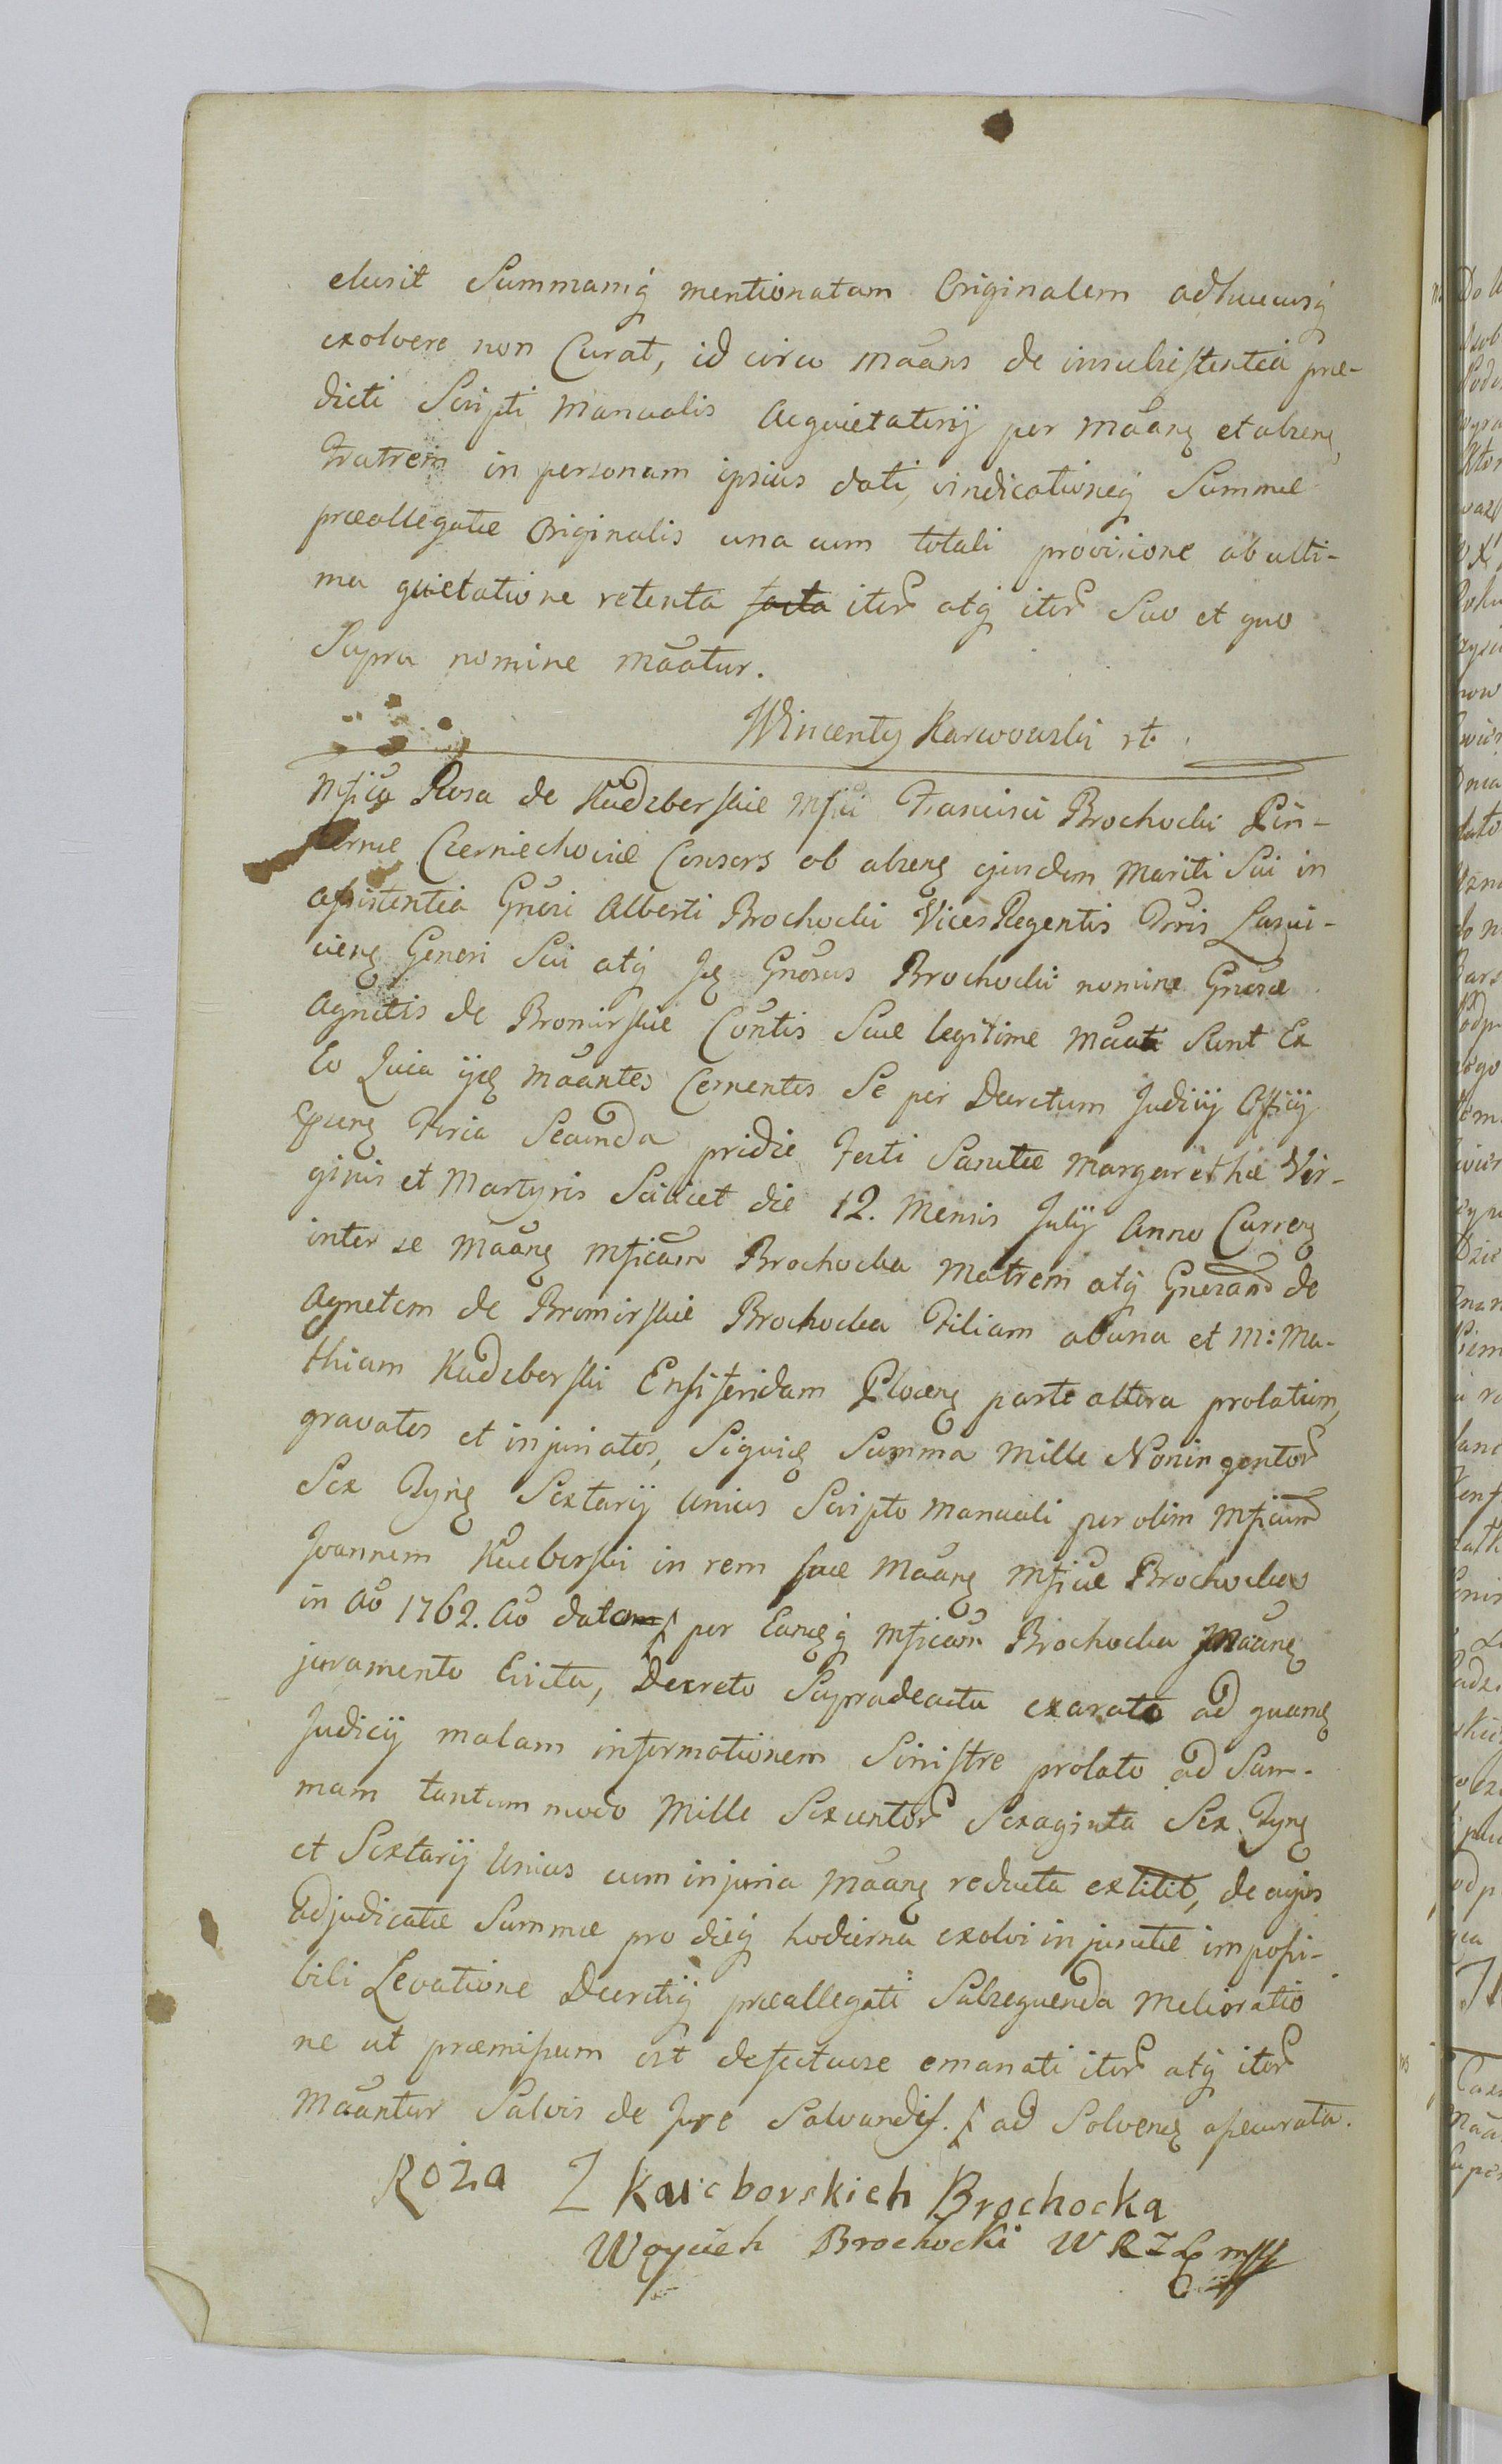 clusit Summamq mentionatam Originalem adhucusq
exolvere non Curat, id circo maans de insubsistentia præ-
dicti Scripti Manualis Acquietatorij per maang et absens
Fratrem in personam ipsius dati, vindicationeq Summæ
præallegatæ Originalis una cum totali provisione ab ulti-
ma quietatione retenta facta iter atq iter Suo et quo
Supra nomine maatur.
Wincenty Karwowski
Mfica Rosa de Kadzberskie Mfici Francisci Brochocki Pin-
cernæ Czerniechoviæ Consors ob absens ejusdem Mariti Sui in
assistentia Gnosi Alberti Brochocki Vices Regentis Trris
Generi Sui atq Gnosus Brochocki nomine Gnosæ
Agnetis de Bromirskie Contis Suæ legitime maati Sunt Ex
Eo Quia maantes Cernentes Se per Decretum Judicij Officij
Feria Secunda pridie Festi Sanctæ Margarethæ Vir-
ginis et Martyris Scilicet die 12. Mensis Julij Anno Curren
inter se maang Mficam Brochocka Matrem atq Gnosam de
Agnetem de Bromirskie Brochocka Filiam ab una et M: Ma-
thiam Kadzborski Ensiferidam Plocens parte altera prolatum,
gravatos et injuriatos, Siquid Summa Mille Noningentor
Sex Tyn Sextarij Unius Scripto Manuali per olim Mficum
Joannem Kucborski in rem suæ maang Mficæ Brochocka
in Ao 1762. Ao datam per Eandq Mficam Brochocka Maang
juramento Evicta, Decreto Supradeacta exarato ad quamq
Judicij malam informationem Sinistre prolato ad Sum-
mam tantum modo Mille Sexcentor Sexaginta Sex Tyn
et Sextarij Unius cum injuria maang reducta extitit, de cujus
adjudicatæ Summæ pro dieq hodierna exolvi injunctæ impossi-
bili Levatione Decretiq præallegati Subsequenda Melioratio
ne ut præmissum est defectuose emanati iter atq iter
maantur Salvis de Jure Salvandis. ad Solvend assecurata.
Roża Z Kucborskich Brochocka
Woyciech Brochocki W R Z Ł mpp